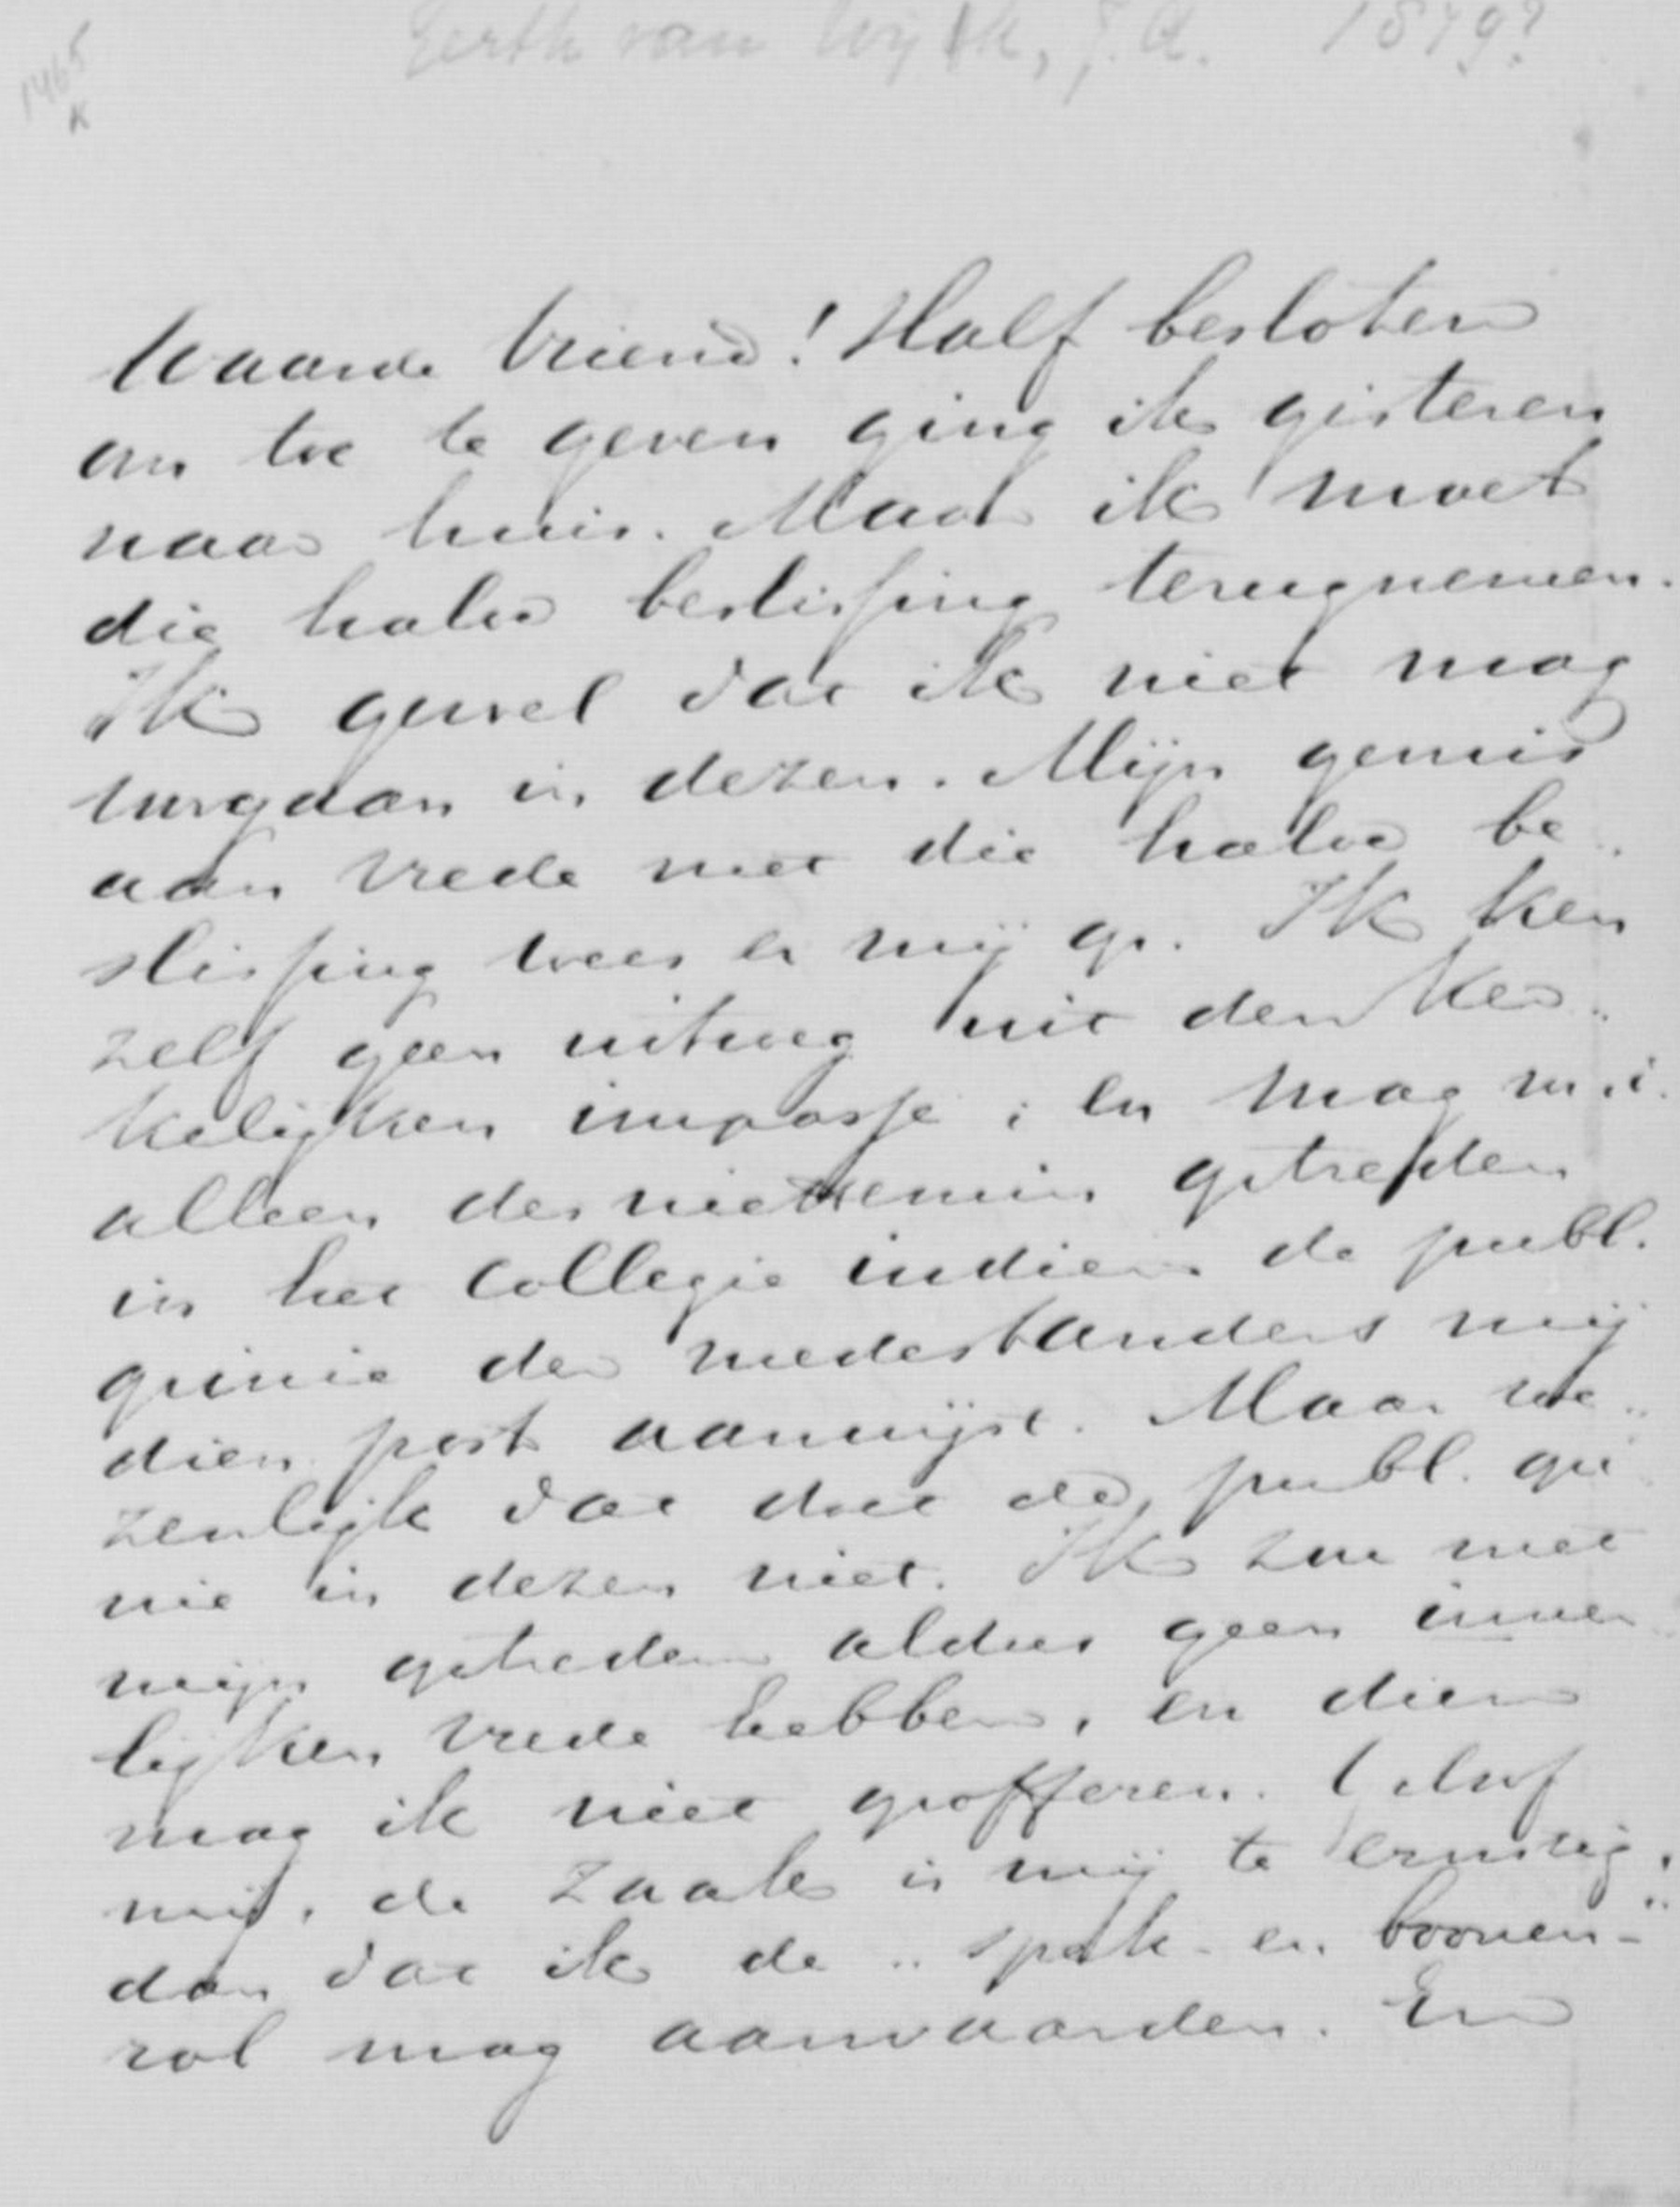 Gerth van Wijk, J.A. 1879?
1465
K
Waarde Vriend! Half besloten
om toe te geven ging ik gisteren
naar huis. Maar ik moet
die halve beslissing terugnemen.
Ik gevoel dat ik niet mag
toegaan in dezen. Mijn gemis
aan vrede met die halve be-
slissing wees er mij op. Ik ken
zelf geen uitweg uit den ker-
kelijken impasse; en mag m.i.
alleen desniettemin optreden
in het Collegie indien de publ.
opinie der medestanders mij
dien post aanwijst. Maar we-
zenlijk dat doet de publ. opi
nie in dezen niet. Ik zou met
mijn optreden aldus geen inner
lijken vrede hebben, en dien
mag ik niet opofferen. Geloof
mij, de zaak is mij te ernstig,
dan dat ik de "spek- en boonen-"
rol mag aanvaarden. En